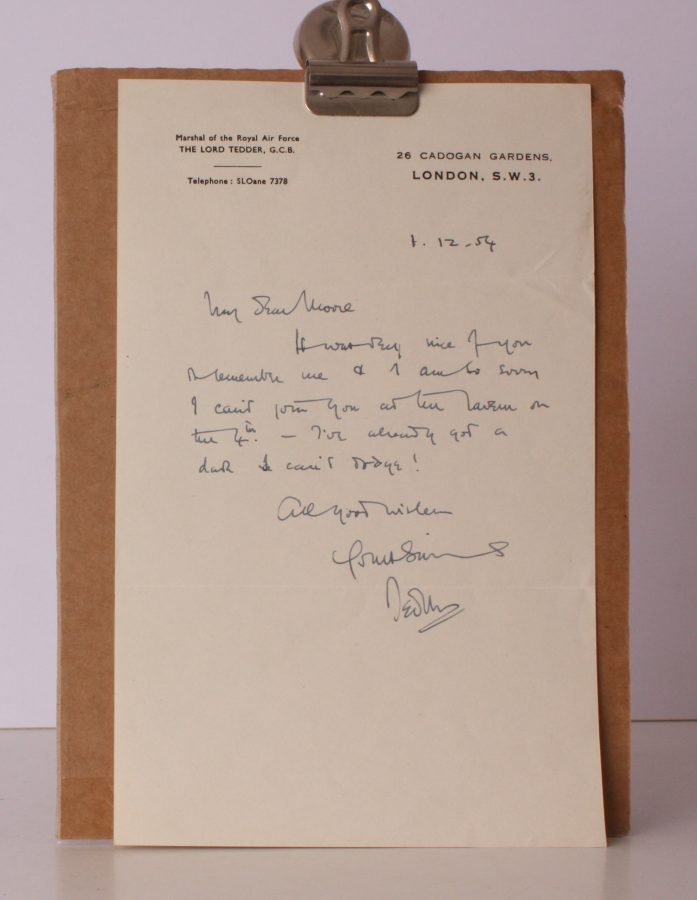 Marshal of the Royal Air Force
THE LORD TEDDER, G.C.B.
Telephone : SLOane 7378
26 CADOGAN GARDENS,
LONDON, S.W.3.
1. 12. 54
My dear Moore
It was very nice of you
remember me & I am so sorry
I can't join you at the Tavern on
the 4th. – I've already got a
date I can't dodge!
All good wishes
Yours Sincerely
Tedder